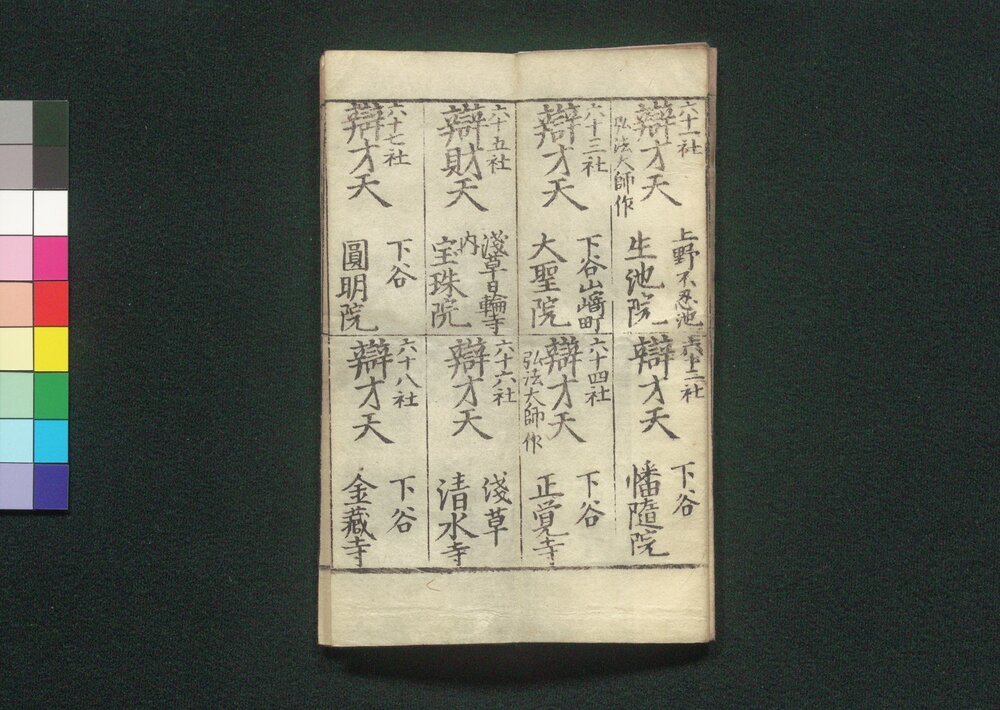 六十一社
辯才天
弘法大師作
上野不忍池
生池院
六十二社
辯才天
下谷
幡隨院
六十三社
辯才天
下谷山﨑町
大聖院
六十四社
辯才天
弘法大師作
下谷
正覚寺
六十五社
辯財天
淺草日輪寺
内
宝珠院
六十六社
辯才天
淺草
清水寺
六十七社
辯才天
下谷
圓明院
六十八社
辯才天
下谷
金藏寺